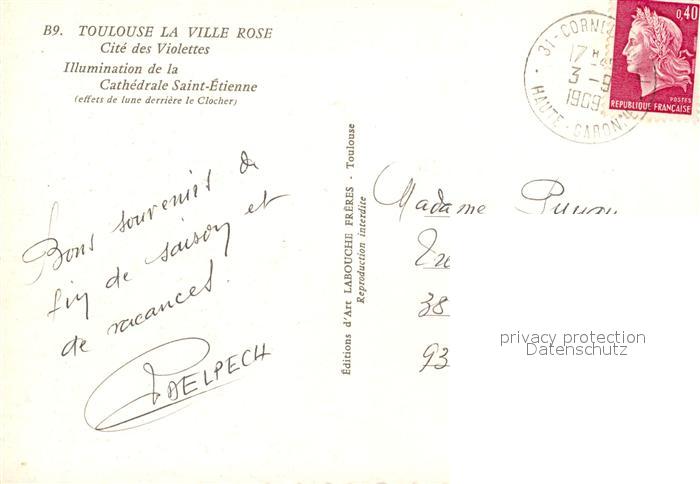 B9. TOULOUSE LA VILLE ROSE
Cité des Violettes
Illumination de la
Cathédrale Saint-Étienne
(effets de lune derrière le Clocher)
Bons souvenirs de
fin de saison et
de vacances.
DELPECH
Éditions d'Art LABOUCHE FRÈRES - Toulouse
Reproduction interdite
0,40
POSTES
REPUBLIQUE FRANÇAISE
31-CORNE
17 H
3 -9
1969
HAUTE-GARONNE
Madame
38
93
privacy protection
Datenschutz